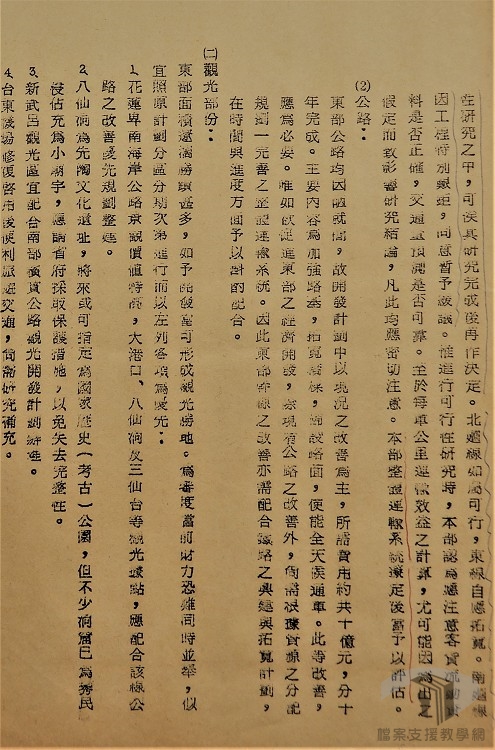 在研究之中,可俟其研究完成後再作決定。北迴線如屬可行,東線自應拓寬。南迴線
因工程特別艱鉅,同意暫予緩議。惟進行可行性研究時,本部認為應注意客貨運量資
料是否正確,交通量預測是否可靠。至於每車公里運輸效益之計算,尤可能因為出之
假定而致影響研究結論,凡此均應密切注意。本部整體運輸系統擬定後當予以評估。
(2)公路:
東部公路均因陋就簡,故開發計劃中以現況之改善為主,所需費用約共十億元,分十
年完成。主要內容為加強路基,拓寬路線,舖設路面,使能全天候通車。此等改善,
應為必要。惟如欲促進東部之經濟開發,除現有公路之改善外,尚需根據資源之分配
規劃一完善之整體運輸系統。因此東部幹線之改善亦需配合鐵路之興建與拓寬計劃,
在時間與進度方面予以計的配合。
㈡觀光部份:
東部面積遼濶勝蹟甚多,如予開發當可形成觀光勝地。為審度當前財力恐難同時並舉,似
宜照原計劃分區分期次第進行而以左列各項為優先:
1.花蓮卑南海岸公路景觀價值特高,大港口、八仙洞及三仙台等觀光據點,應配合該線公
路之改善優先規劃整建。
2.八仙洞為先陶文化遺址,將來或可指定為國家歷史(考古)公園,但不少洞窟已為莠民
侵佔充為小廟宇,應請省府採取保護措施,以免失去完整性。
3.新武呂觀光區宜配合南部橫貫公路觀光開發計劃辦理。
4.台東機場修復啓用後便利旅遊交通,尚需研究補充。
檔案支援教學網